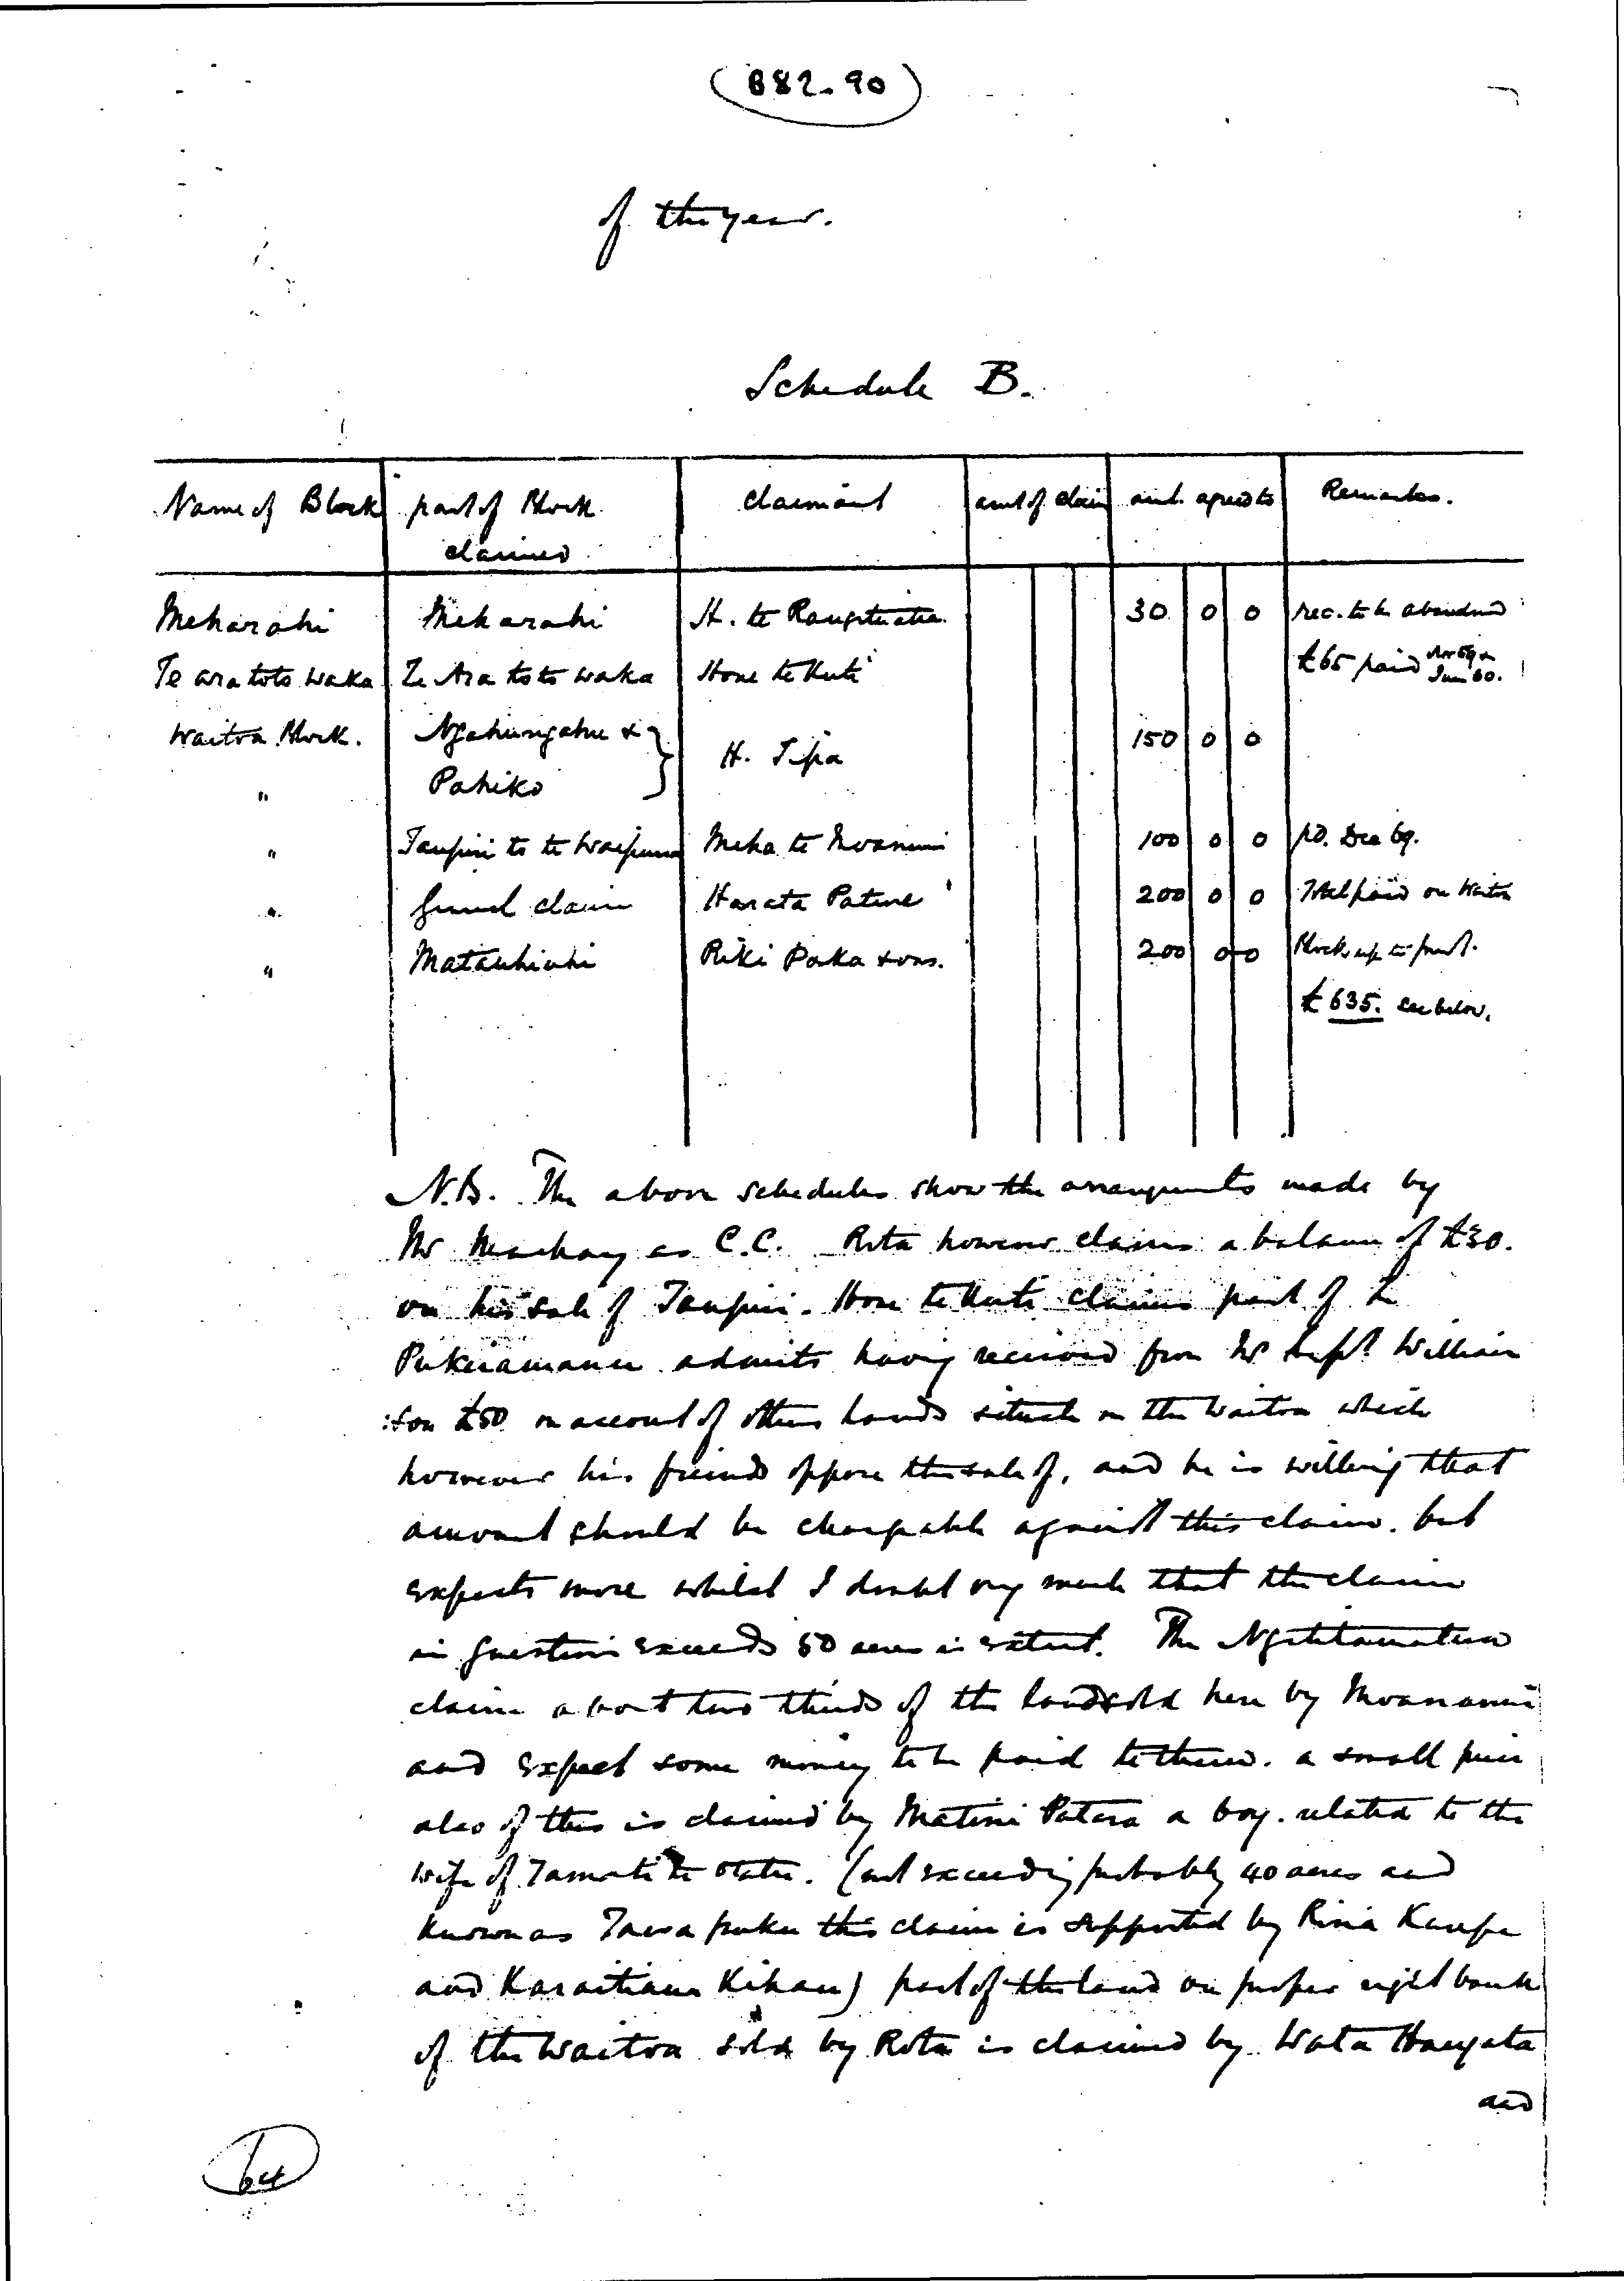 882-90
of the year.
Schedule B.
Name of Block part of Block claimed Claimant amt of claim amt. agreed to Remarks.
Meharahi Mekarahi H. te 30 0 0 rec. to be abandoned
Te aratoto waka Te Ara toto waka Hone te £65 paid
Waitoa Block. Ngahungahu & H. Tipa 150 0 0
" Pahiko
" Taupiri to te Meha te Moananui 100 0 0 pd. Dec 69.
" General claim Harata Patene 200 0 0 Total paid on Waitoa
" Matauhiuhi Riki Paka & ors. 200 0 0 Block up to
£635. see below.
N.B. The above schedules show the arrangements made by
Mr Mackay as C.C. Rota however claims a balance of £30.
on his sale of Taupiri. Hone te claims part of
admits having received from Mr William
:son £50 on account of other lands situate on the Waitoa which
however his friends oppose the sale of, and he is willing that
amount should be chargeable against this claim. but
expects more whilst I doubt very much that the claim
in question exceeds 50 acres in extent. The Ngatitamatera
claim about two thirds of the land sold here by Moananui
and expect some money to be paid to them. a small piece
also of this is claimed by Matini Patara a boy. related to the
wife of Tamati te (not exceeding probably 40 acres and
known as Tawa puku this claim is supported by Riria
and Karaitiana Kihau) part of the land on proper right bank
of the Waitoa sold by Rota is claimed by Wata
and
64